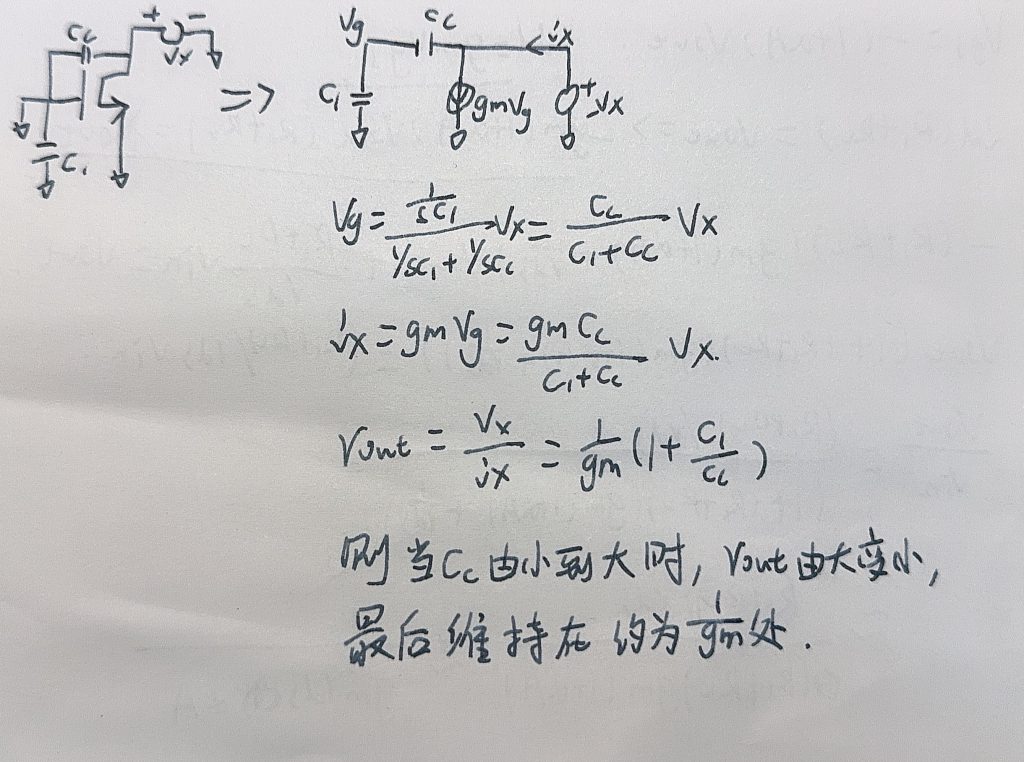 Cc + - Vx C1
=> Vg Cc ix C1 gmVg + - Vx
Vg = \frac{\frac{1}{sC1}}{1/sC1 + 1/sCc} Vx = \frac{Cc}{C1+Cc} Vx
ix = gm Vg = \frac{gm Cc}{C1+Cc} Vx.
rout = \frac{Vx}{ix} = \frac{1}{gm} (1 + \frac{C1}{Cc})
则当Cc由小到大时, rout由大变小,
最后维持在约为\frac{1}{gm}处.